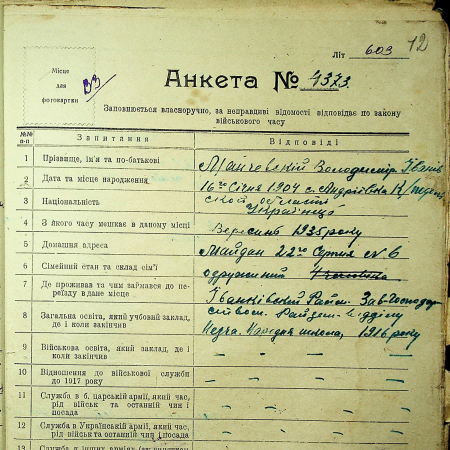 12
Літ 603
Місце для фотокартки
33
Анкета № 4373
Заповнюється власноручно, за неправдиві відомості відповідає по закону
військового часу
№№ п-п Запитання Відповіді
1 Прізвище, ім'я та по-батькові Володимир Іванів
2 Дата та місце народження 16го Січня 1904 с. Андріївка
3 Національність Українець
4 З якого часу мешкає в даному місці Вересень 1935 року
5 Домашня адреса Майдан 22го Серпня № 6
6 Сімейний стан та склад сім'ї одружений
7 Де проживав та чим займався до переїзду в дане місце Іванківський Район. Зав.
8 Загальна освіта, який учбовий заклад, де і коли закінчив Народня школа, 1916 року
9 Військова освіта, який заклад, де і коли закінчив – – –
10 Відношення до військової служби до 1917 року – – –
11 Служба в б. царській армії, який час, рід військ та останній чин і посада – – –
12 Служба в Українській армії, який час, рід військ та останній чин і посада – – –
13 Служба в інших арміях